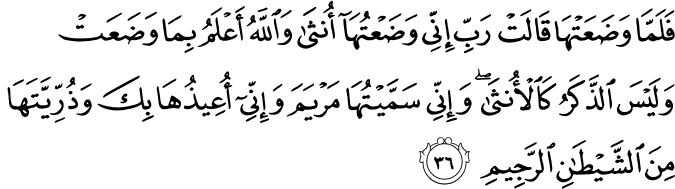 فَلَمَّا وَضَعَتْهَا قَالَتْ رَبِّ إِنِّي وَضَعْتُهَآ أُنثَىٰ وَٱللَّهُ أَعْلَمُ بِمَا وَضَعَتْ
وَلَيْسَ ٱلذَّكَرُ كَٱلْأُنثَىٰ ۖ وَإِنِّي سَمَّيْتُهَا مَرْيَمَ وَإِنِّيٓ أُعِيذُهَا بِكَ وَذُرِّيَّتَهَا
مِنَ ٱلشَّيْطَـٰنِ ٱلرَّجِيمِ ٣٦